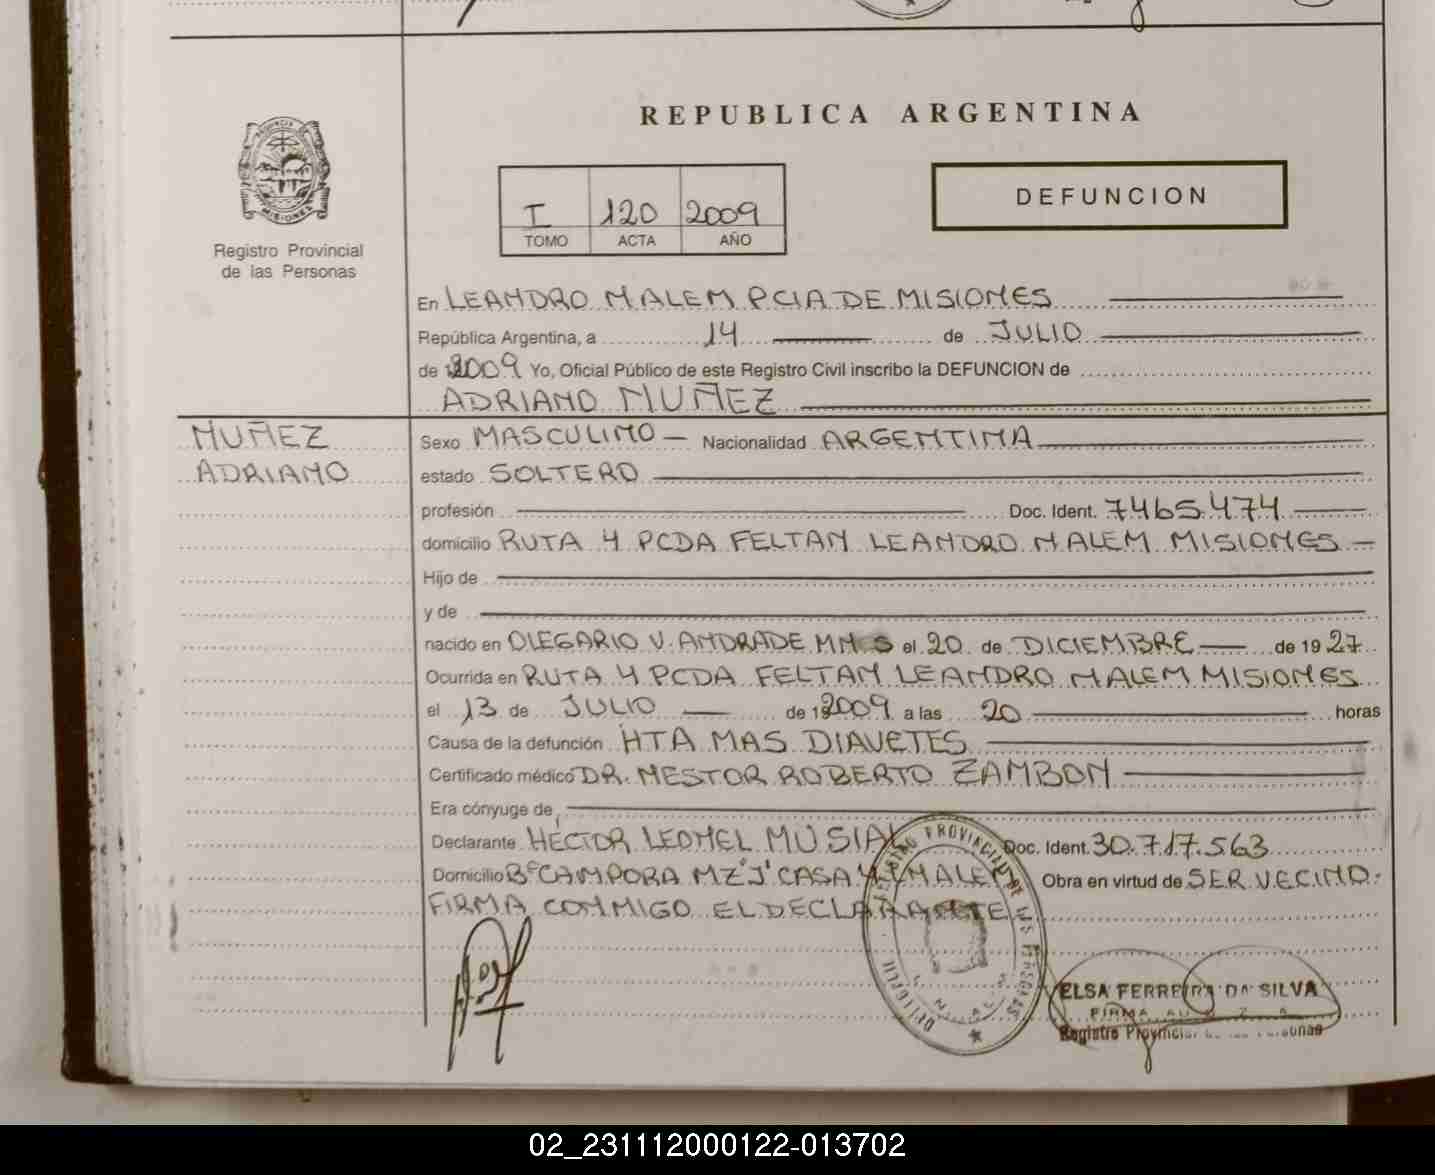 REPUBLICA ARGENTINA
DEFUNCION
I 120 2009
TOMO ACTA AÑO
MISIONES
Registro Provincial
de las Personas
En LEANDRO N ALEM PCIA DE MISIONES
República Argentina, a 14 de JULIO
de 2009 Yo, Oficial Público de este Registro Civil inscribo la DEFUNCION de
ADRIANO MUÑEZ
MUÑEZ
ADRIANO
Sexo MASCULINO Nacionalidad ARGENTINA
estado SOLTERO
profesión Doc. Ident. 7465.474
domicilio RUTA 4 PCDA FELTAN LEANDRO N ALEM MISIONES
Hijo de
y de
nacido en OLEGARIO V. ANDRADE MNES el 20 de DICIEMBRE de 1927
Ocurrida en RUTA 4 PCDA FELTAN LEANDRO N ALEM MISIONES
el 13 de JULIO de 2009 a las 20 horas
Causa de la defunción HTA MAS DIAVETES
Certificado médico DR. NESTOR ROBERTO ZAMBON
Era cónyuge de
Declarante HECTOR LEONEL MUSIAL Doc. Ident. 30.717.563
Domicilio Bº CAMPORA MZ "J" CASA 4 LNALEM Obra en virtud de SER VECINO.
FIRMA CONMIGO EL DECLARANTE
REGISTRO PROVINCIAL DE LAS PERSONAS
ELSA FERREIRA DA SILVA
FIRMA
Registro Provincial de las Personas
02_231112000122-013702